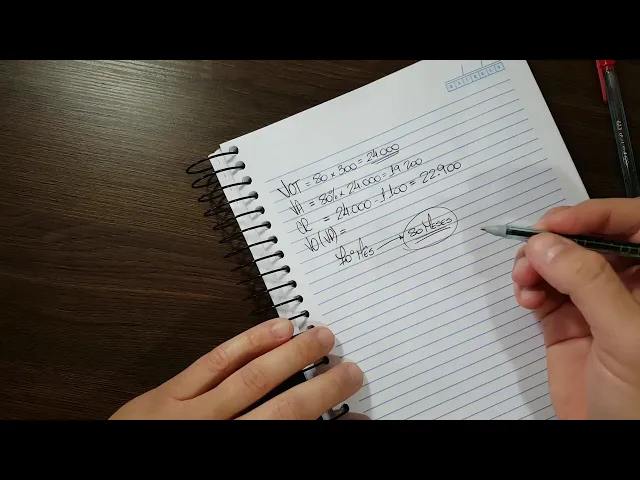 VOT = 80 x 300 = 24 000
VA = 80% x 24 000 = 19 200
CR = 24 000 - 1.100 = 22.900
VO (VD) =
10º MÊS → 80 MESES